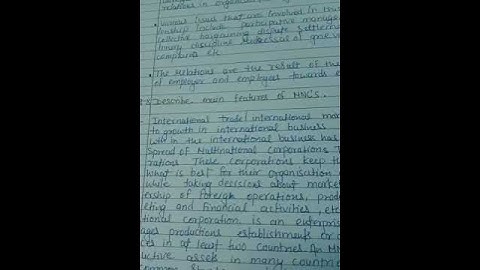 relations in organisation
• various issues that are involved in this
tionship include participative manage
collective bargaining dispute settlement
linary discipline redressal of griev
complaints etc
• The relations are the result of the
of employer and employees towards e
Describe main features of MNCs.
International trade/international mar
to growth in international business
with in the international business has
Spread of Multinational Corporations T
rations These corporations keep t
what is best for their organisation
while taking decisions about market
ership of foreign operations, produ
eting and financial activities, etc
tional corporation is an enterpris
ages productions establishments or
ces in at least two countries An MN
uctive assets in many countrie